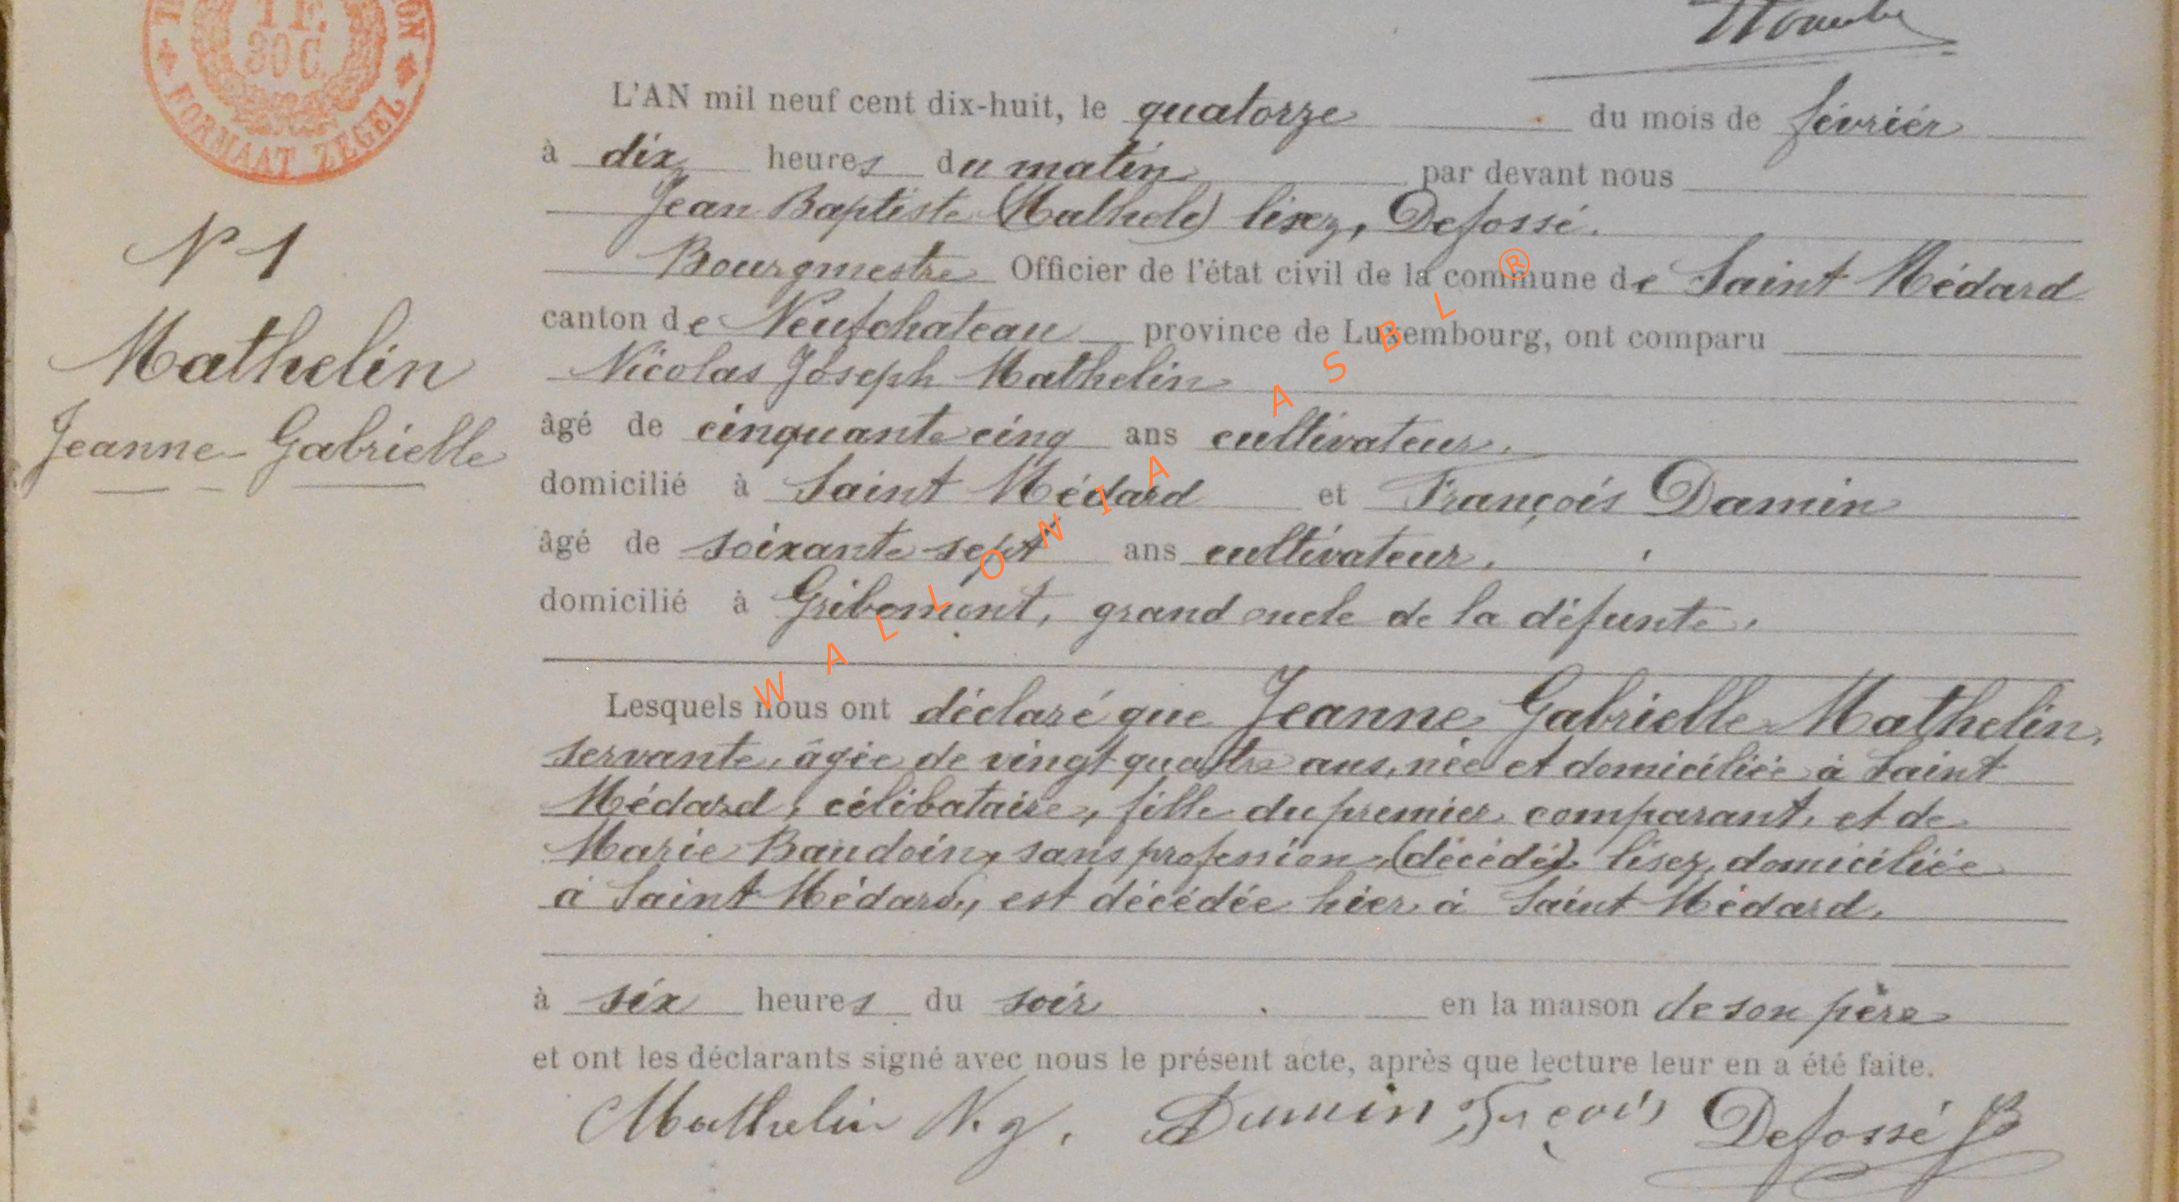 1 F.
30 C.
FORMAAT ZEGEL
L'AN mil neuf cent dix-huit, le quatorze du mois de février
à dix heures du matin par devant nous
Jean Baptiste (Mathele) lisez, Defossé.
Bourgmestre Officier de l'état civil de la commune de Saint Médard
canton de Neufchateau province de Luxembourg, ont comparu
Nicolas Joseph Mathelin
âgé de cinquante cinq ans cultivateur.
domicilié à Saint Médard et François Damin
âgé de soixante sept ans cultivateur.
domicilié à Gribomont, grand oncle de la défunte.
N° 1
Mathelin
Jeanne-Gabrielle
Lesquels nous ont déclaré que Jeanne Gabrielle Mathelin,
servante, âgée de vingt quatre ans, née et domiciliée à Saint
Médard, célibataire, fille du premier comparant, et de
Marie Baudoin, sans profession, (décédé) lisez, domiciliée
à Saint Médard, est décédée hier à Saint Médard.
à six heures du soir en la maison de son père
et ont les déclarants signé avec nous le présent acte, après que lecture leur en a été faite.
Mathelin N. J. Damin François Defossé JB
WALLONIA ASBL ®